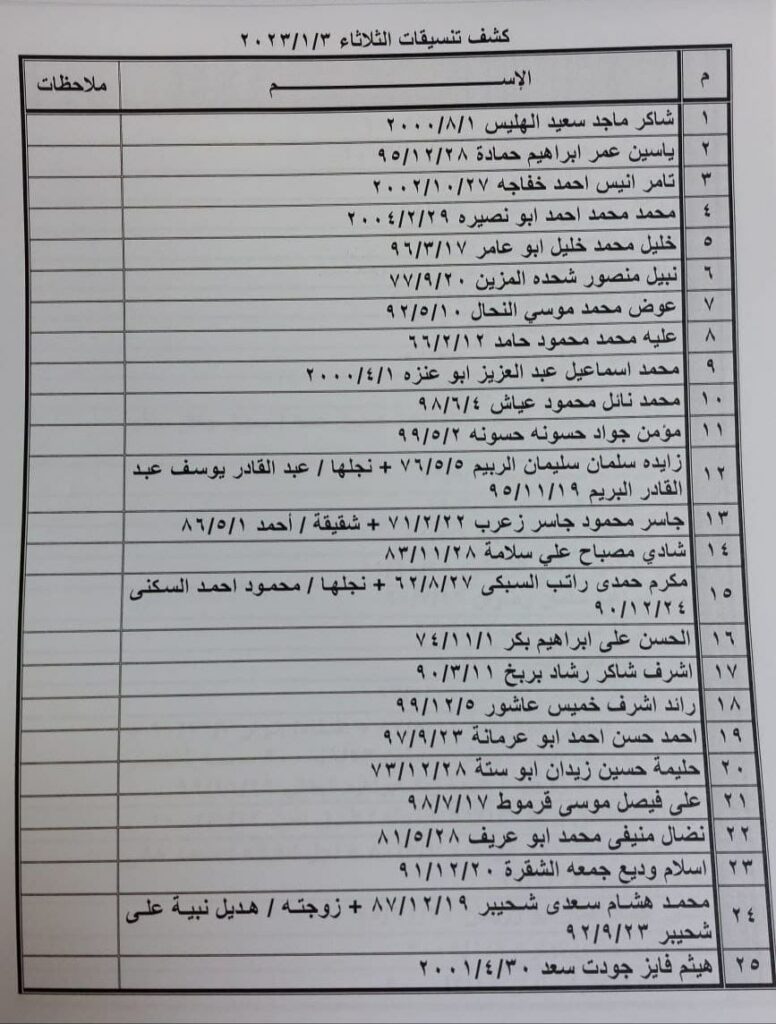 كشف تنسيقات الثلاثاء ٢٠٢٣/١/٣
م الإســــــــــــم ملاحظات
١ شاكر ماجد سعيد الهليس ٢٠٠٠/٨/١
٢ ياسين عمر ابراهيم حمادة ٩٥/١٢/٢٨
٣ تامر انيس احمد خفاجه ٢٠٠٢/١٠/٢٧
٤ محمد محمد احمد ابو نصيره ٢٠٠٤/٢/٢٩
٥ خليل محمد خليل ابو عامر ٩٦/٣/١٧
٦ نبيل منصور شحده المزين ٧٧/٩/٢٠
٧ عوض محمد موسي النحال ٩٢/٥/١٠
٨ عليه محمد محمود حامد ٦٦/٢/١٢
٩ محمد اسماعيل عبد العزيز ابو عنزه ٢٠٠٠/٤/١
١٠ محمد نائل محمود عياش ٩٨/٦/٤
١١ مؤمن جواد حسونه حسونه ٩٩/٥/٢
١٢ زايده سلمان سليمان الربيم ٧٦/٥/٥ + نجلها / عبد القادر يوسف عبد
القادر البريم ٩٥/١١/١٩
١٣ جاسر محمود جاسر زعرب ٧١/٢/٢٢ + شقيقة / أحمد ٨٦/٥/١
١٤ شادي مصباح علي سلامة ٨٣/١١/٢٨
١٥ مكرم حمدى راتب السبكى ٦٢/٨/٢٧ + نجلها / محمود احمد السكنى
٩٠/١٢/٢٤
١٦ الحسن على ابراهيم بكر ٧٤/١١/١
١٧ اشرف شاكر رشاد بربخ ٩٠/٣/١١
١٨ رائد اشرف خميس عاشور ٩٩/١٢/٥
١٩ احمد حسن احمد ابو عرمانة ٩٧/٩/٢٣
٢٠ حليمة حسين زيدان ابو ستة ٧٣/١٢/٢٨
٢١ على فيصل موسى قرموط ٩٨/٧/١٧
٢٢ نضال منيفى محمد ابو عريف ٨١/٥/٢٨
٢٣ اسلام وديع جمعه الشقرة ٩١/١٢/٢٠
٢٤ محمد هشام سعدى شحيبر ٨٧/١٢/١٩ + زوجته / هديل نبية على
شحيبر ٩٢/٩/٢٣
٢٥ هيثم فايز جودت سعد ٢٠٠١/٤/٣٠